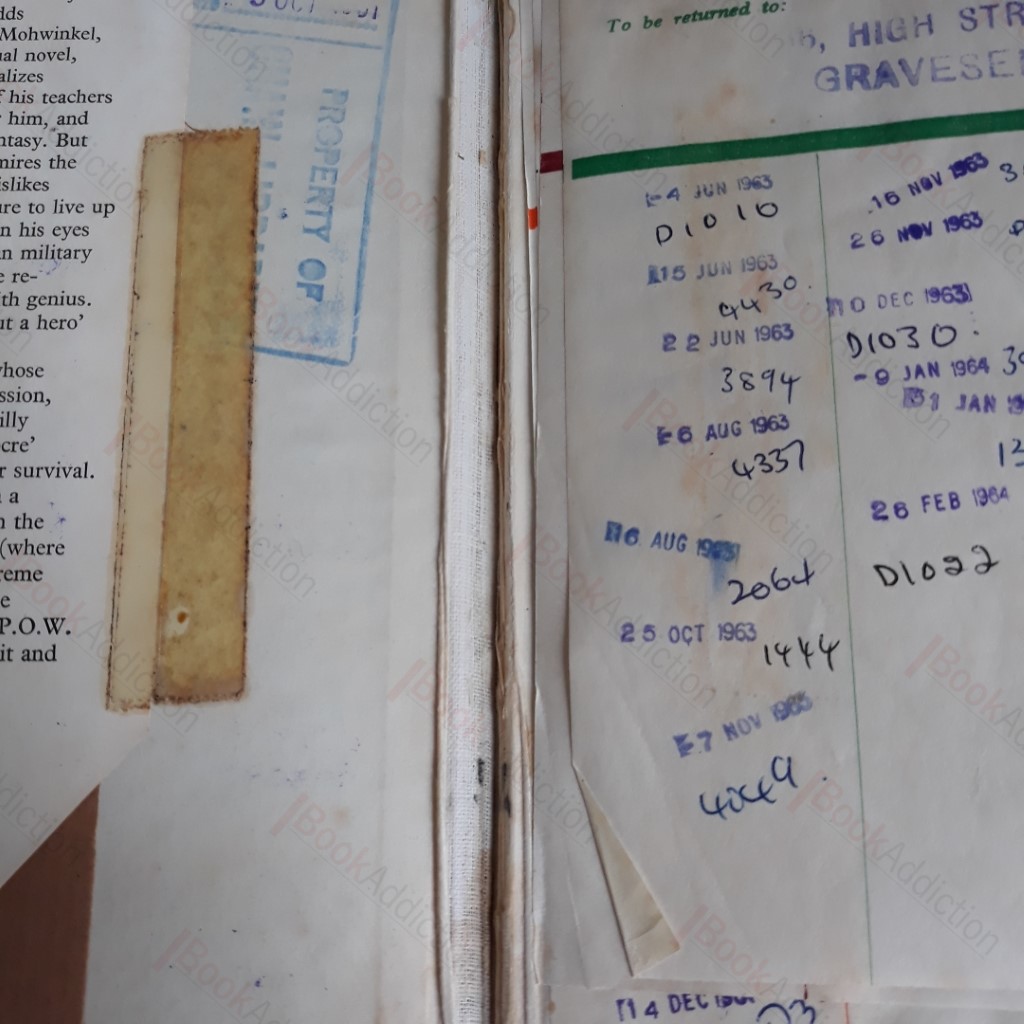 dds
Mohwinkel,
ual novel,
alizes
f his teachers
r him, and
ntasy. But
mires the
islikes
ure to live up
n his eyes
an military
e re-
ith genius.
ut a hero'
whose
ssion,
illy
cre'
r survival.
a
n the
(where
reme
e
P.O.W.
it and
PROPERTY OF
To be returned to:
HIGH STR
GRAVESE
4 JUN 1963
D1010
15 JUN 1963
9430
22 JUN 1963
3894
6 AUG 1963
4337
16 AUG 1963
2064
25 OCT 1963
1444
7 NOV 1963
4049
16 NOV 1963
26 NOV 1963
10 DEC 1963
D1030
-9 JAN 1964
31 JAN
13
26 FEB 1964
D1022
14 DEC
BookAddiction